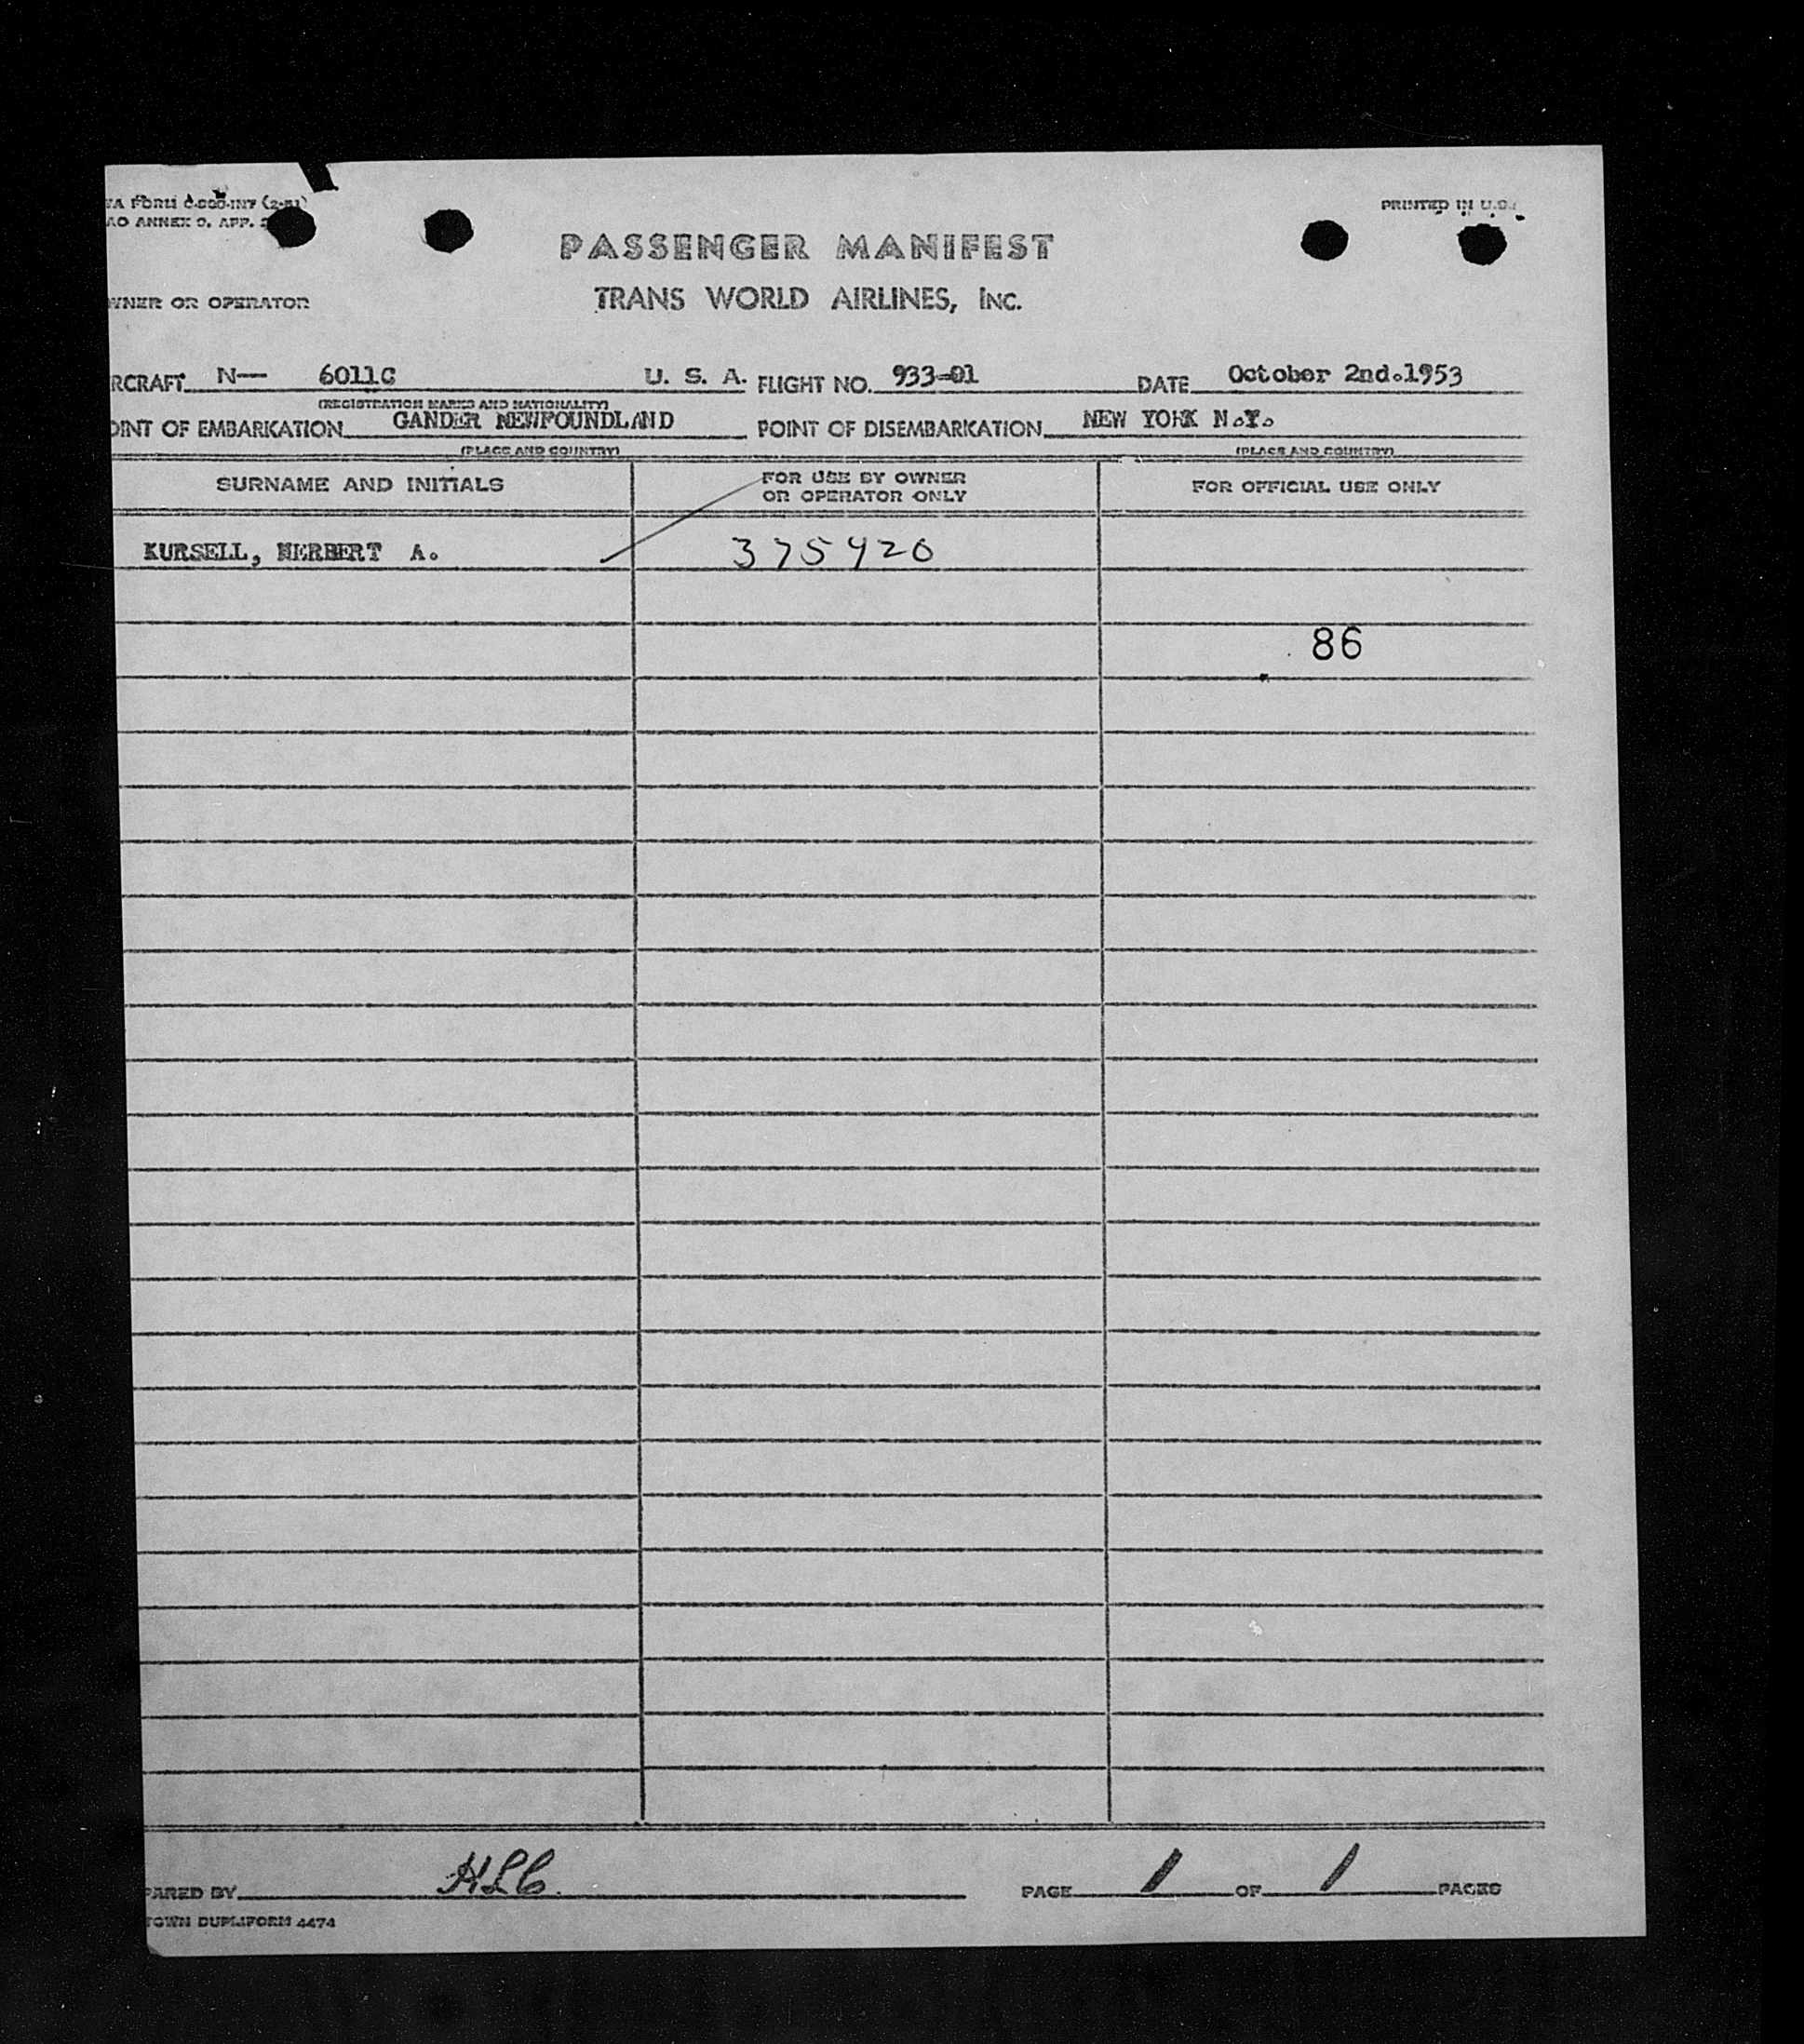 PRINTED IN U.S.
AO ANNEX 9, APP.
PASSENGER MANIFEST
WNER OR OPERATOR
TRANS WORLD AIRLINES, INC.
RCRAFT N— 6011C U. S. A. FLIGHT NO. 933-01 DATE October 2nd.1953
(REGISTRATION MARKS AND NATIONALITY)
OINT OF EMBARKATION GANDER NEWFOUNDLAND POINT OF DISEMBARKATION NEW YORK N.Y.
(PLACE AND COUNTRY) (PLACE AND COUNTRY)
SURNAME AND INITIALS FOR USE BY OWNER OR OPERATOR ONLY FOR OFFICIAL USE ONLY
KURSELL, HERBERT A. 375420
86
PARED BY HLC. PAGE 1 OF 1 PAGES
TOWN DUPLIFORM 4474